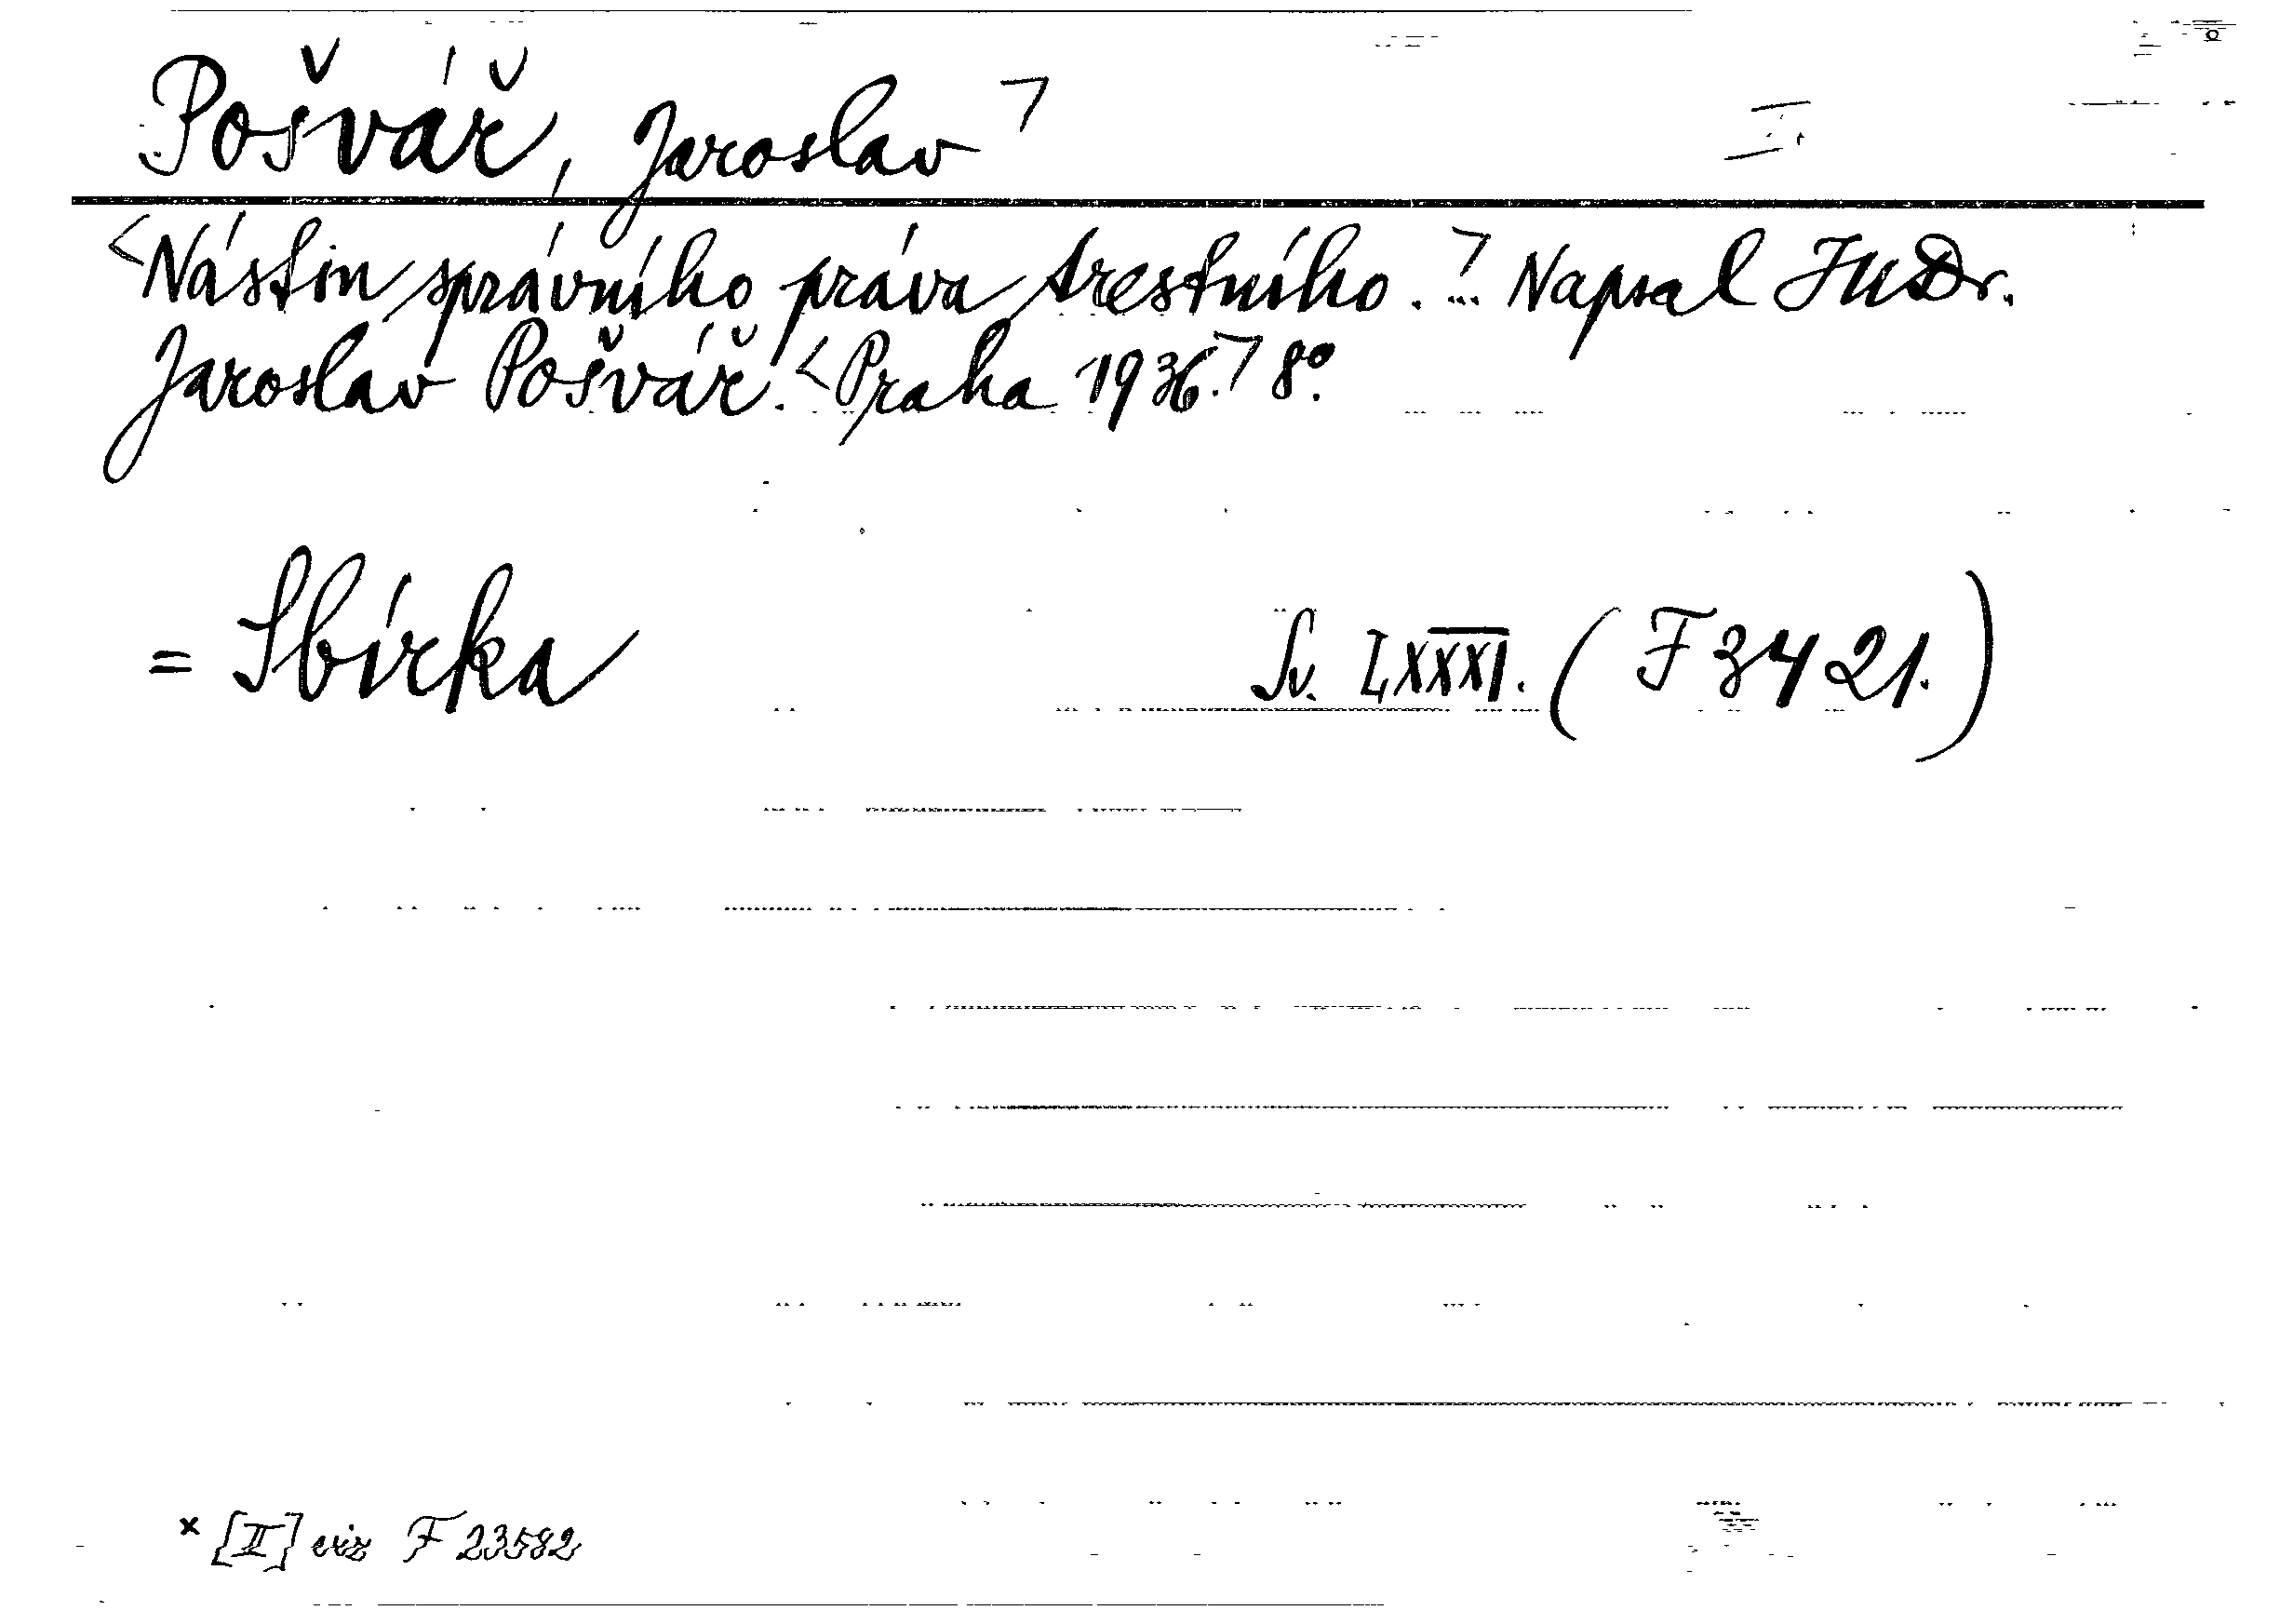 Pošvář, Jaroslav ㄱ
<Nástin správního práva trestního.ㄱ... Napsal JUDr.
Jaroslav Pošvář. <Praha 1936.ㄱ 8º.
= Sbírka Sv. LXXXI. (F 3421.)
× [II] viz F 23582